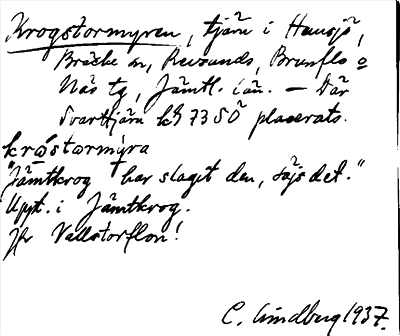 Krogstormyren, tjärn i Hansjö,
Bräcke sn, Revsunds, Brunflo o
Näs tg, Jämtl. län. — Där
Svarttjärn k§ 73 SÖ placerats.
krǫ́stormýra
"Jämtkrog har slagit den, säjs det."
Uppt. i Jämtkrog.
Jfr Vallstorflon!
C. Lindberg 1937.